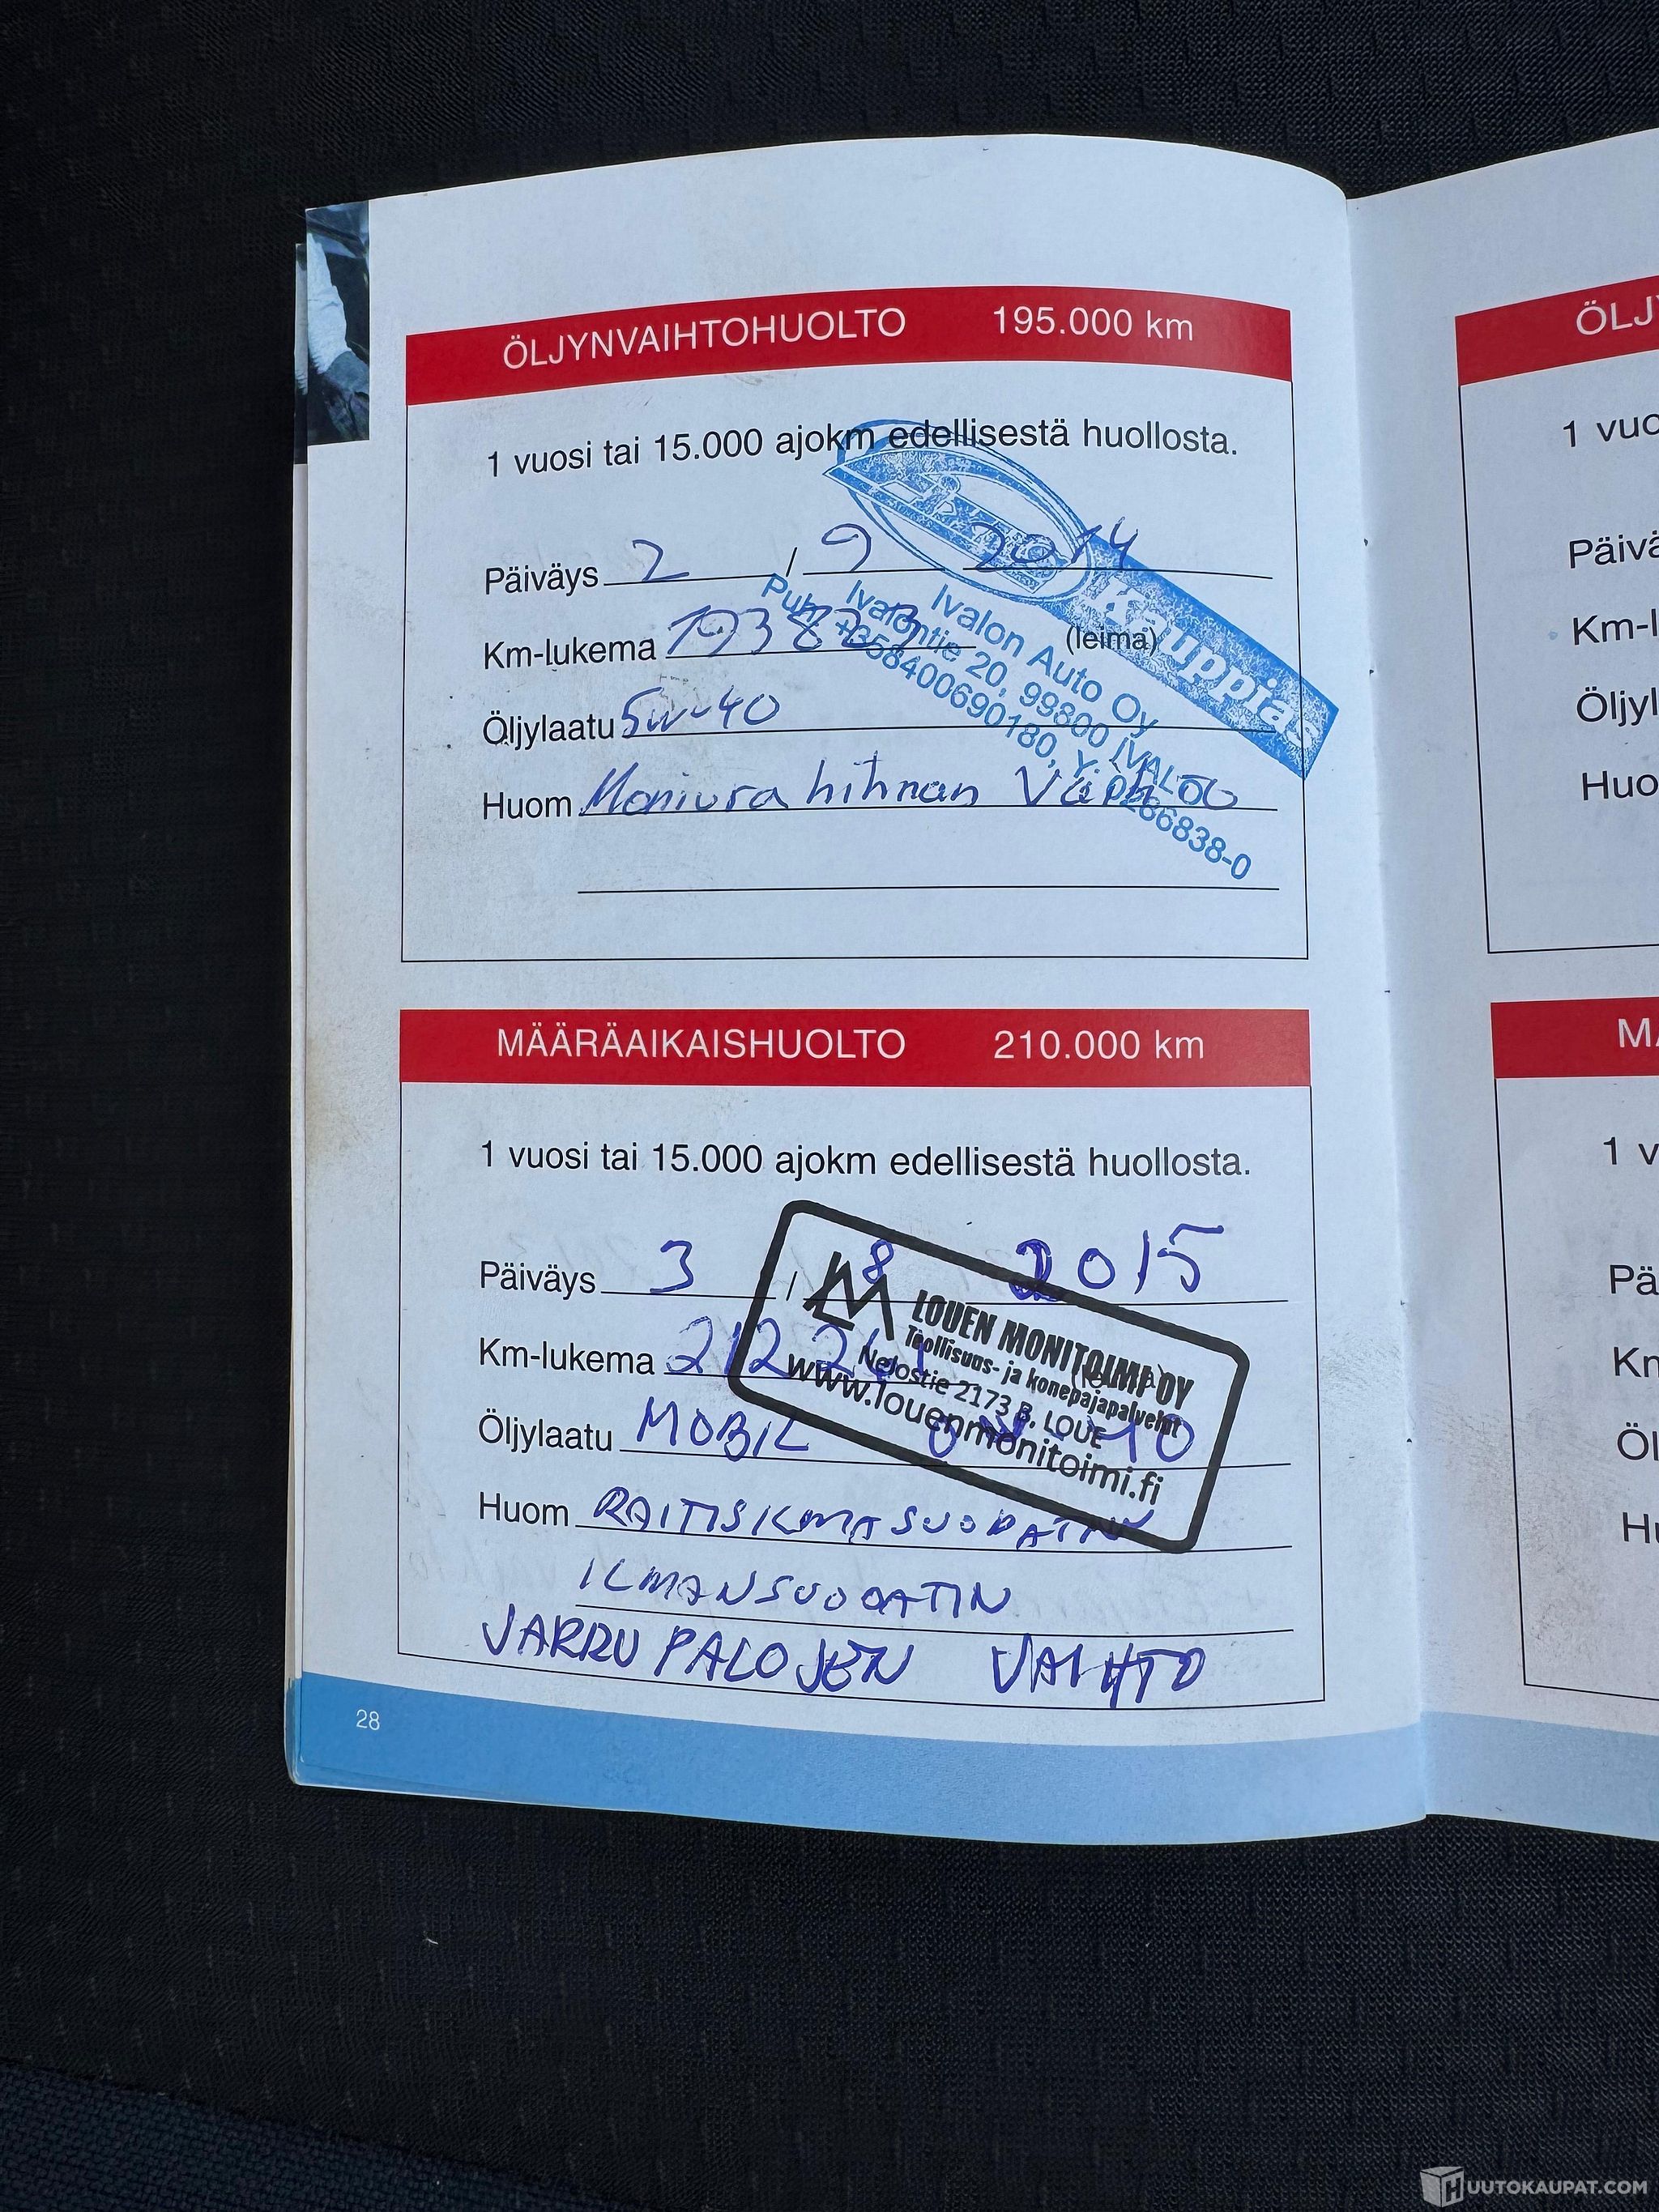 ÖLJYNVAIHTOHUOLTO 195.000 km
1 vuosi tai 15.000 ajokm edellisestä huollosta.
Päiväys 2 / 9 2014
Km-lukema 193823 (leima)
Öljylaatu 5w-40
Huom Moniura hihnan Vaihto
Kauppias
Ivalon Auto Oy
Ivalontie 20, 99800 IVALO
Puh. +358400690180, Y. 0266838-0
MÄÄRÄAIKAISHUOLTO 210.000 km
1 vuosi tai 15.000 ajokm edellisestä huollosta.
Päiväys 3 / 8 2015
Km-lukema 212
Öljylaatu MOBIL
Huom RAITISILMASUODATIN
ILMANSUODATIN
JARRUPALOJEN VAIHTO
LM LOUEN MONITOIMI OY
Teollisuus- ja konepajapalvelut
Nelostie 2173 B, LOUE
www.louenmonitoimi.fi
28
ÖLJ
1 vuo
Päivä
Km-l
Öljyl
Huo
MÄ
1 v
Pä
Km
Öl
Hu
HUUTOKAUPAT.COM